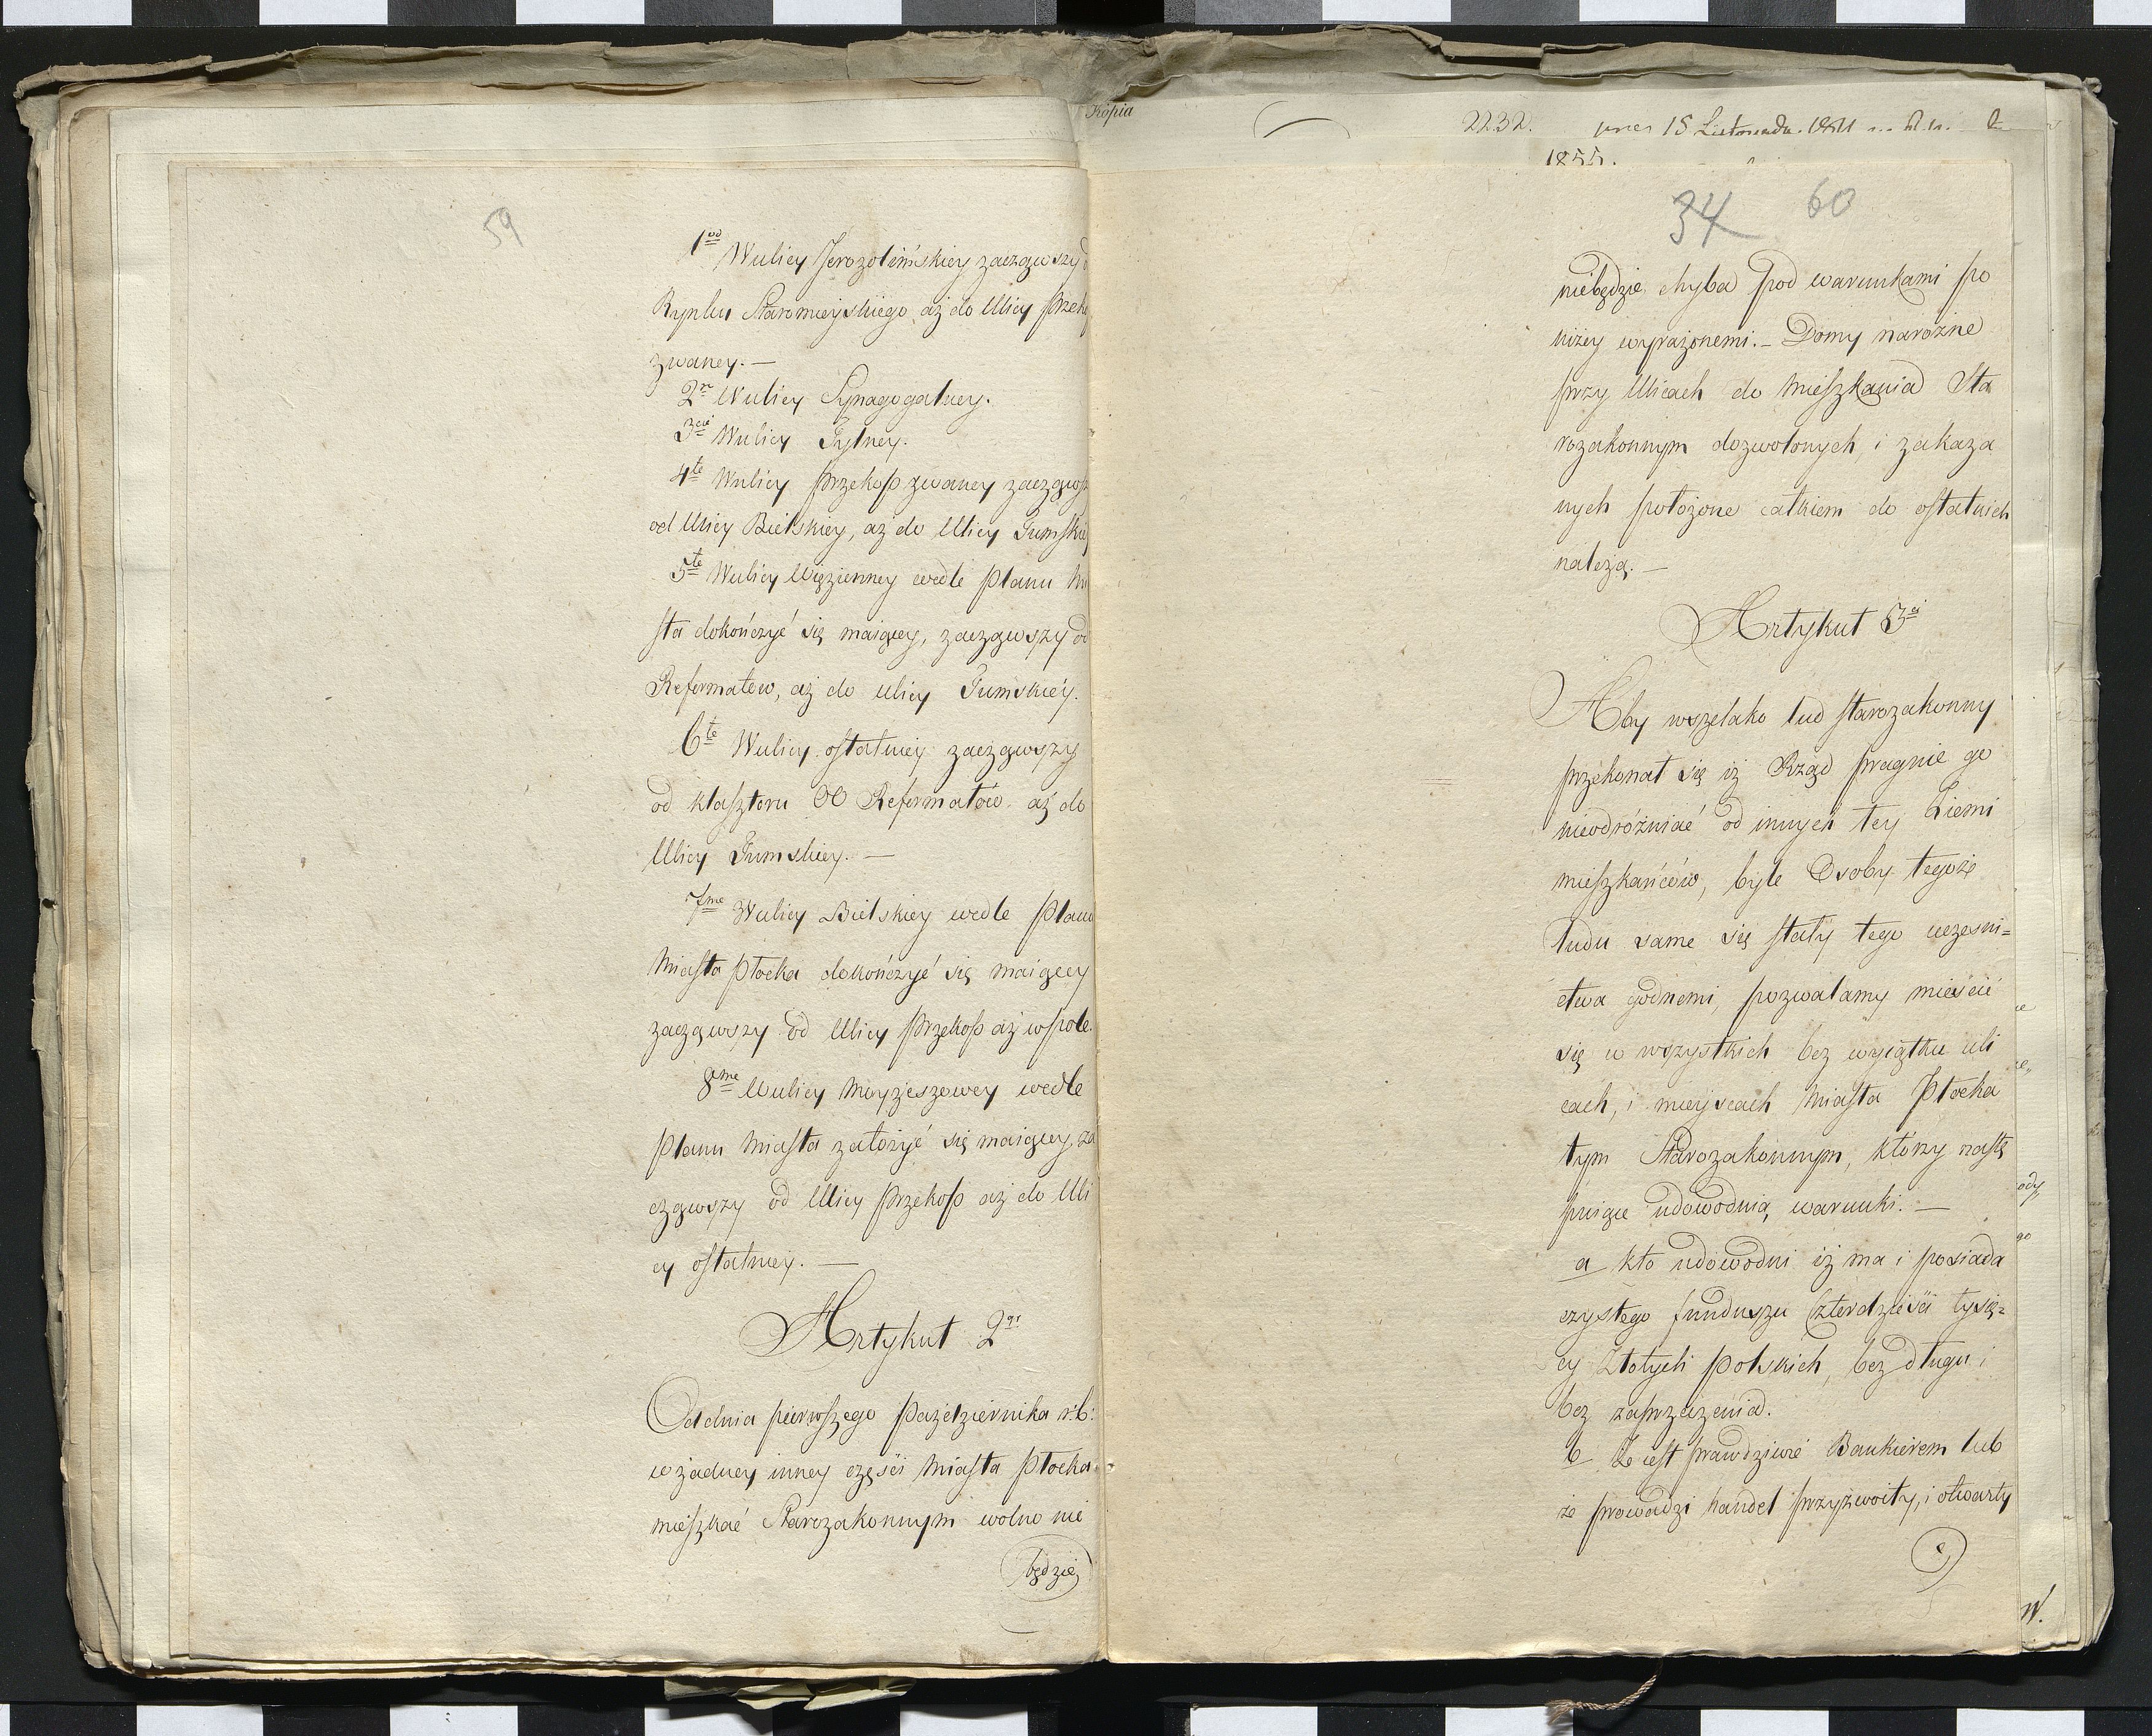 Kopia
2232.
15 Listopada
1855.
59
1od Wulicy Jerozolimskiey zacząwszy
Rynku Staromieyskiego aż do Ulicy Przeko
zwaney. —
2re Wulicy Synagogalney.
3cie Wulicy Tylney.
4te Wulicy Przekop zwaney zacząwsz
od Ulicy Bielskiey, aż do Ulicy Tumskiey
5te Wulicy Więzienney wedle planu Mi
sta dokończyć się maiącey, zacząwszy od
Reformatow, aż do ulicy Tumskiéy.
6te Wulicy ostatniey zacząwszy
od klasztoru OO Reformatów aż do
Ulicy Tumskiey. —
7me Wulicy Bielskiey wedle planu
Miasta Płocka dokończyć się maiącey
zacząwszy od Ulicy Przekop aż w pole.
8me Wulicy Moyżeszowey wedle
planu Miasta założyć się maiącey, za
cząwszy od Ulicy Przekop aż do Uli
cy ostatniey. —
Artykuł 2gi
Od dnia pierwszego Października r: b:
w żadney inney części Miasta Płocka
mieszkać Starozakonnym wolno nie
będzie
34 60
niebędzie, chyba pod warunkami po
niżey wyrażonemi. — Domy narożne
przy Ulicach do mieszkania Sta
rozakonnym dozwolonych, i zakaza
nych położone całkiem do ostatnich
należą. —
Artykuł 3ci
Aby wszelako lud starozakonny
przekonał się iż Rząd pragnie go
nieodróżniać od innych tey Ziemi
mieszkańców, byle Osoby tegoż
ludu same się stały tego uczesni=
ctwa godnemi, pozwalamy mieścić
się w wszystkich bez wyiątku uli
cach, i mieyscach Miasta Płocka
tym Starozakonnym, którzy nastę
puiące udowodnią warunki. —
a kto udowodni iż ma i posiada
czystego funduszu Czterdzieści tysię=
cy Złotych Polskich, bez długu i
bez zaprzeczenia.
b Ze iest prawdziwie Bankierem lub
że prowadzi handel przyzwoity, i otwarty